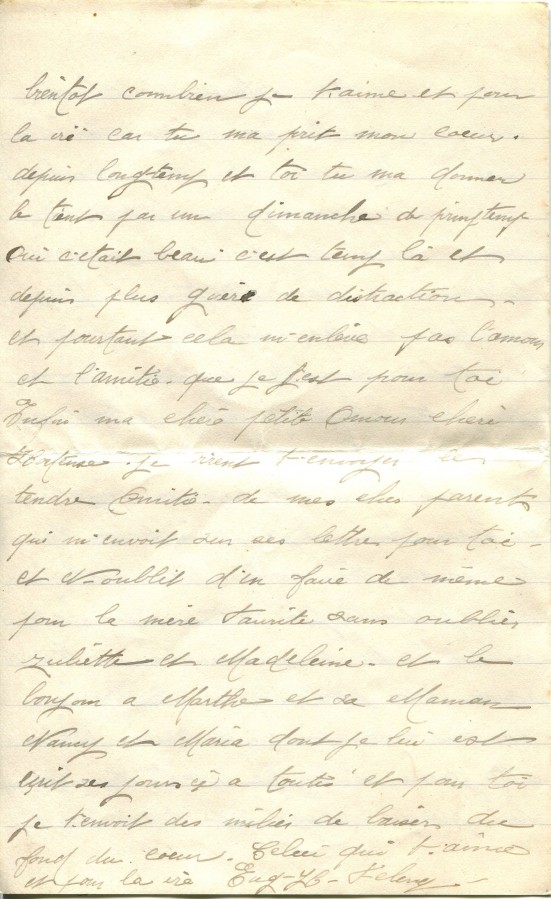 bientot combien je t'aime et pour
la vie car tu ma prit mon coeur.
depuis longtemp et toi tu ma donner
le tient par un dimanche de printemp
Oui c'etait beau c'est temp là et
depuis plus guère de distraction -
et pourtant cela m'enlève pas l'amour
et l'amitié que je j'est pour toi
Enfin ma chère petite Amour cheri
Hortense. je vient t'envoyer les
tendre Amitié - de mes chers parent
qui m'envoit sur ses lettre pour toi -
et N-oublit d'en faire de même
pour la mère sans oublier
Juliette et Madeleine - et le
bonjour a Marthe et sa Maman
Nancy et Maria dont je lui est
ecrit ses jours çi a toutes et pour toi
je t'envoit des milies de baiser du
fond du coeur. Celui qui t'aime
et pour la vie Eug-